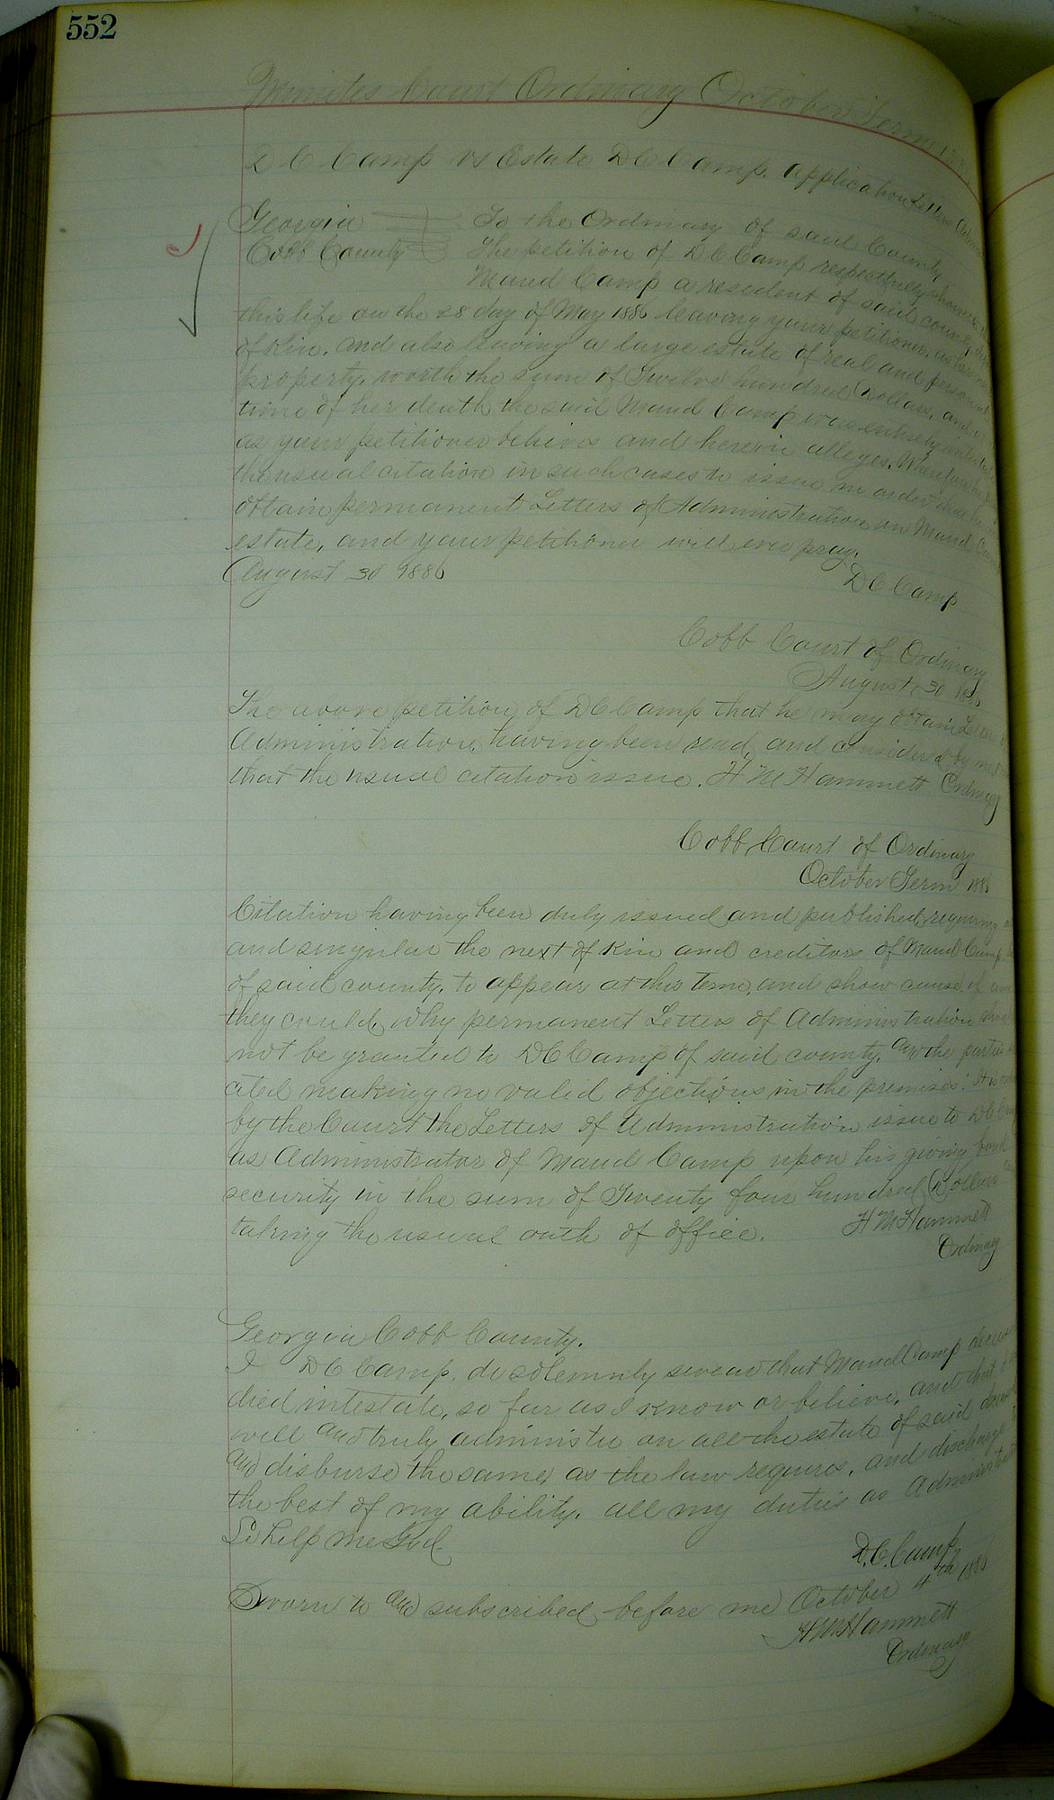 552
Minutes Court Ordinary October Term
D C Camp vs Estate D C Camp. Application Letters
Georgia To the Ordinary of said County,
Cobb County The petition of D C Camp respectfully shows
Maud Camp a resident of said county
this life on the 28 day of May 1886 leaving your petitioner
of Kin. and also leaving a large estate of real and personal
property, worth the sum of Twelve hundred Dollars, and
time of her death the said Maud Camp was entirely
as your petitioner believes and herein alleges. Wherefore
the usual citation in such cases to issue in order that
obtain permanent Letters of Administration on Maud
estate, and your petitioner will ever pray.
August 30 1886 D C Camp
Cobb Court of Ordinary
August 30
The above petition of D C Camp that he may obtain
Administration, having been read, and considered by
that the usual citation issue. H M Hammett Ordinary
Cobb Court of Ordinary
October Term 188
Citation having been duly issued and published, requiring
and singular the next of Kin and creditors of Maud Camp
of said county, to appear at this term, and show cause, if
they could, why permanent Letters of Administration
not be granted to D C Camp of said county. and the parties
cited making no valid objections in the premises. It is
by the Court the Letters of Administration issue to D C
as Administrator of Maud Camp upon his giving bond
security in the sum of Twenty four hundred Dollars
taking the usual oath of office. H M Hammett
Ordinary
Georgia Cobb County.
I D C Camp. do solemnly swear that Maud Camp
died intestate, so far as I know or believe, and that
will and truly administer on all the estate of said
and disburse the same, as the law requires, and discharge
the best of my ability. all my duties as
So help me God.
D. C. Camp
Sworn to and subscribed before me October 4th 1886
H M Hammett
Ordinary